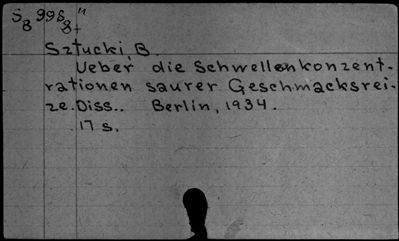 Sztucki, B.
Ueber die Schwellenkonzent-
rationen saurer Geschmacksrei-
ze. Diss.. Berlin, 1934.
17 s.